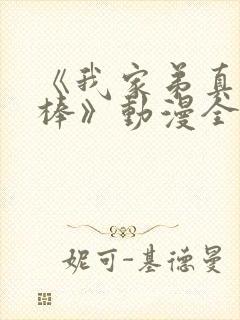 《我家弟真
棒》動漫全
妮可-基德曼